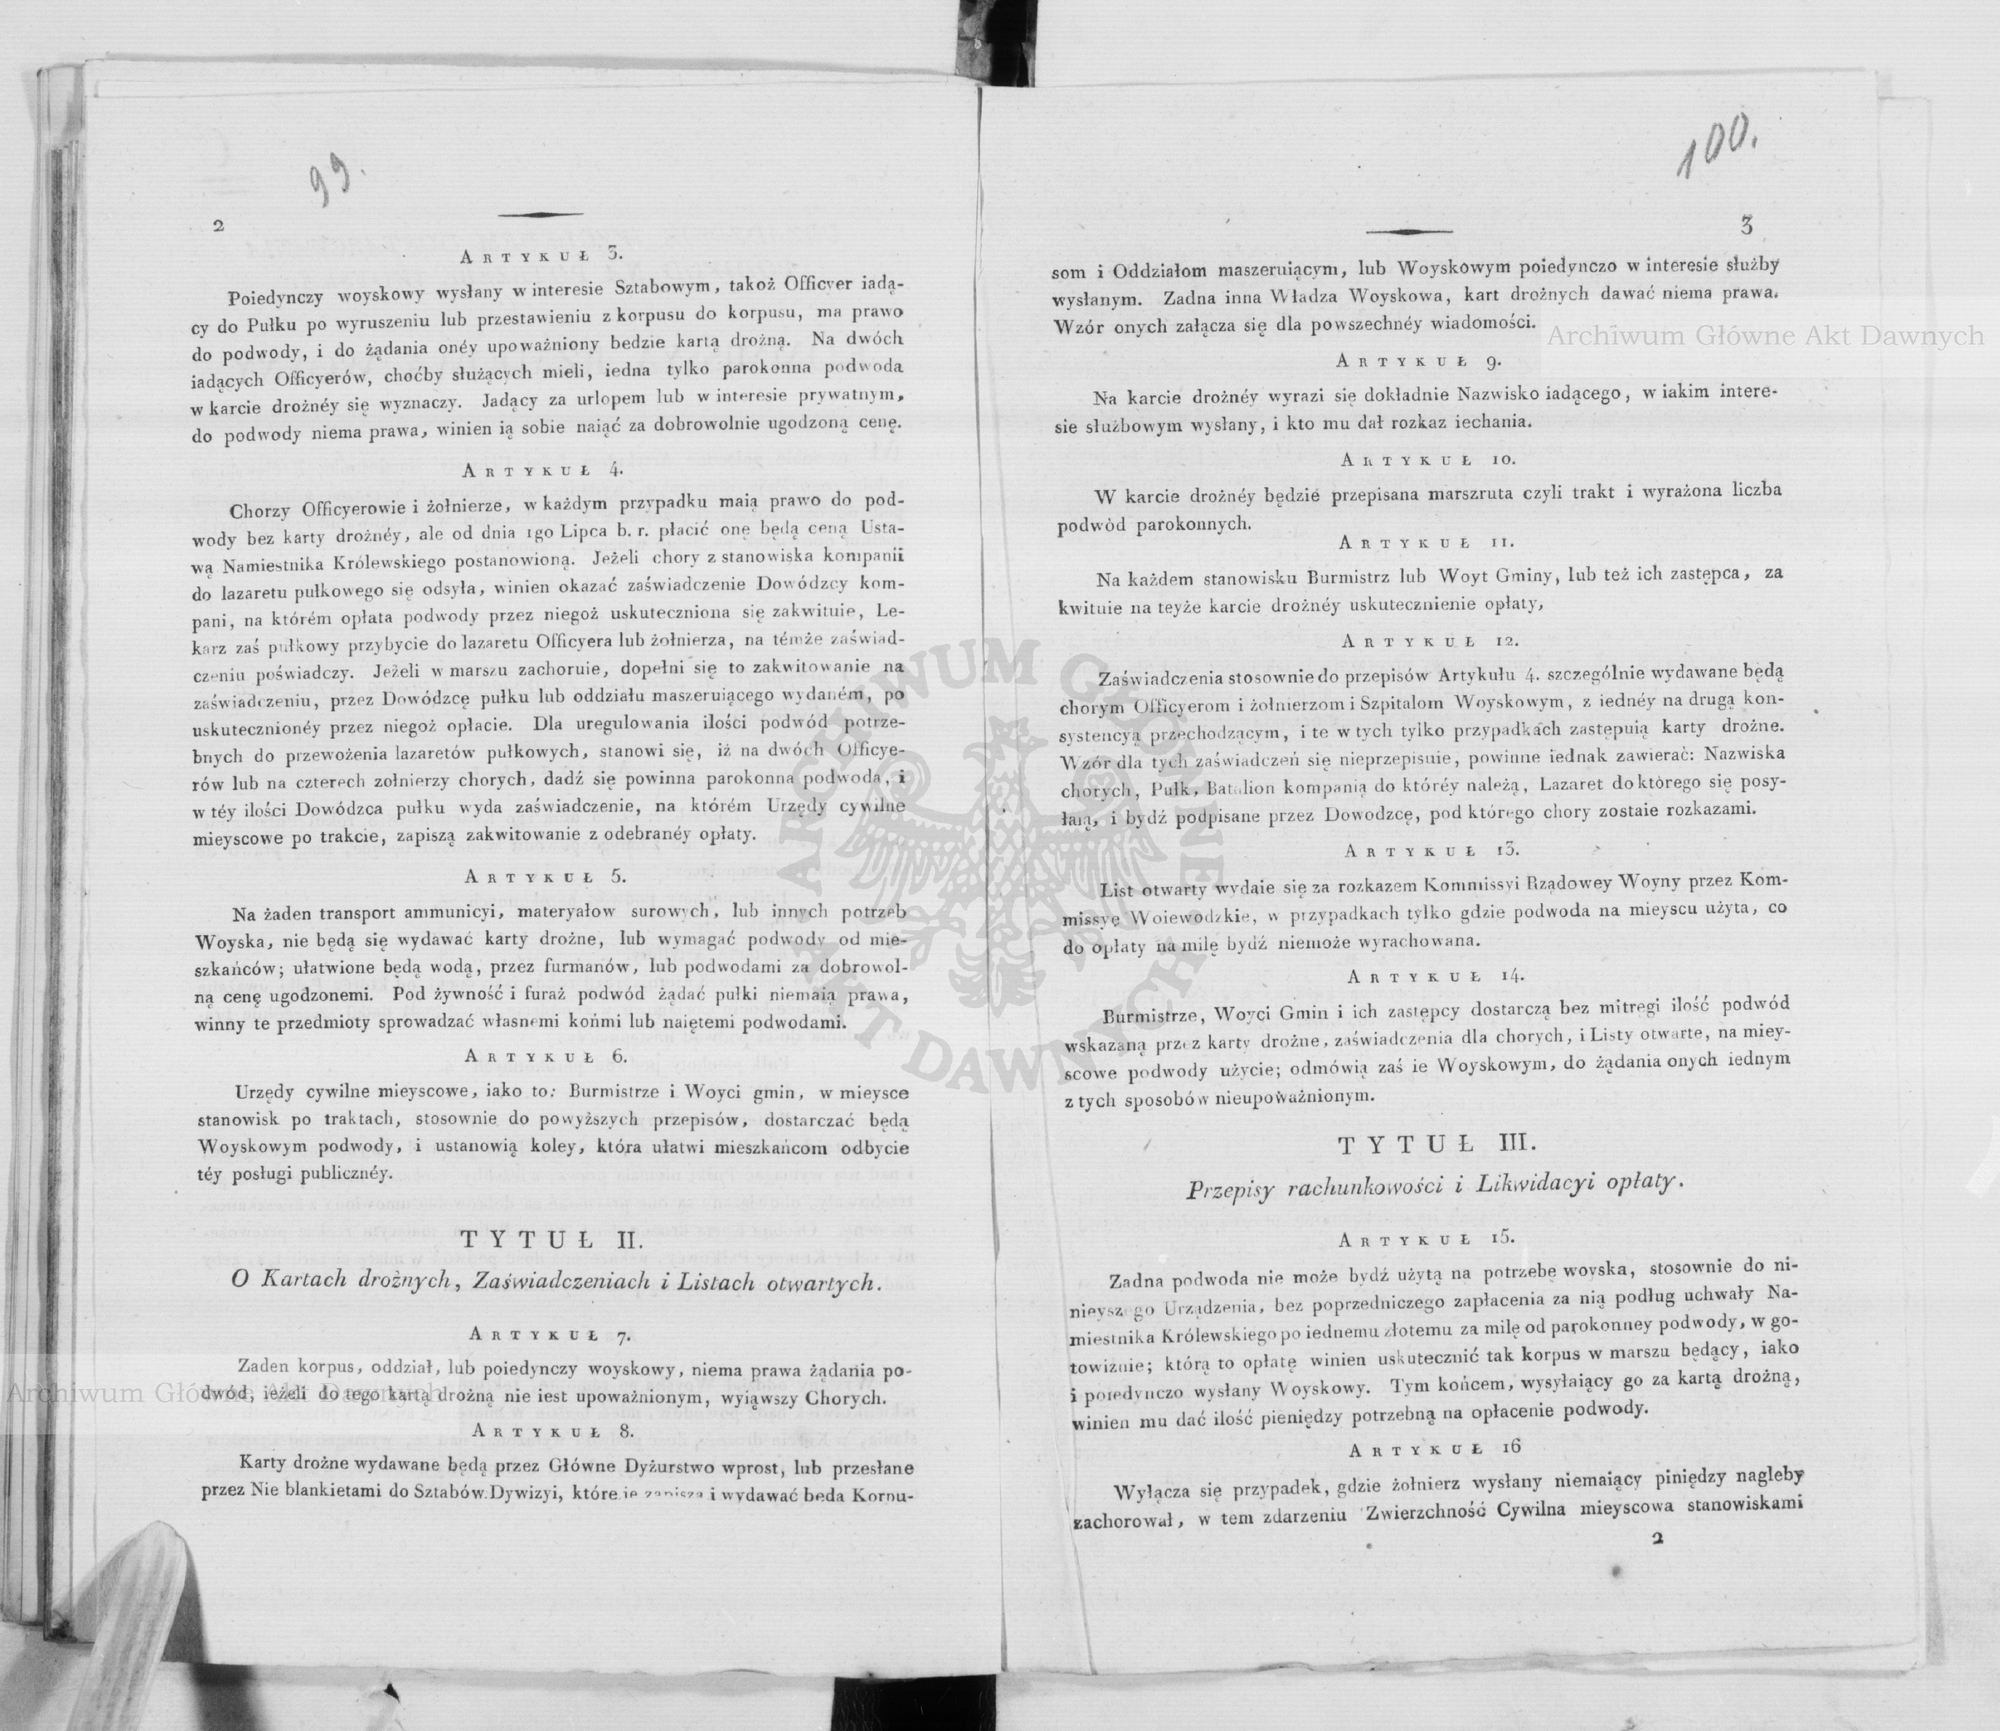 99.
2
ARTYKUŁ 3.
Poiedynczy woyskowy wysłany w interesie Sztabowym, takoż Officyer iadą-
cy do Pułku po wyruszeniu lub przestawieniu z korpusu do korpusu, ma prawo
do podwody, i do żądania onéy upoważniony bedzie kartą drożną. Na dwóch
iadących Officyerów, choćby służących mieli, iedna tylko parokonna podwoda
w karcie drożnéy się wyznaczy. Jadący za urlopem lub w interesie prywatnym,
do podwody niema prawa, winien ią sobie naiąć za dobrowolnie ugodzoną cenę.
ARTYKUŁ 4.
Chorzy Officyerowie i żołnierze, w każdym przypadku maią prawo do pod-
wody bez karty drożnéy, ale od dnia 1go Lipca b. r. płacić onę będą ceną Usta-
wą Namiestnika Królewskiego postanowioną. Jeżeli chory z stanowiska kompanii
do lazaretu pułkowego się odsyła, winien okazać zaświadczenie Dowódzcy kom-
pani, na którém opłata podwody przez niegoż uskuteczniona się zakwituie, Le-
karz zaś pułkowy przybycie do lazaretu Officyera lub żołnierza, na témże zaświad-
czeniu poświadczy. Jeżeli w marszu zachoruie, dopełni się to zakwitowanie na
zaświadczeniu, przez Dowódzcę pułku lub oddziału maszeruiącego wydaném, po
uskutecznionéy przez niegoż opłacie. Dla uregulowania ilości podwód potrze-
bnych do przewożenia lazaretów pułkowych, stanowi się, iż na dwóch Officye-
rów lub na czterech zołnierzy chorych, dadź się powinna parokonna podwoda, i
w téy ilości Dowódzca pułku wyda zaświadczenie, na którém Urzędy cywilne
mieyscowe po trakcie, zapiszą zakwitowanie z odebranéy opłaty.
ARTYKUŁ 5.
Na żaden transport ammunicyi, materyałow surowych, lub innych potrzeb
Woyska, nie będą się wydawać karty drożne, lub wymagać podwody od mie-
szkańców; ułatwione będą wodą, przez furmanów, lub podwodami za dobrowol-
ną cenę ugodzonemi. Pod żywność i furaż podwód żądać pułki niemaią prawa,
winny te przedmioty sprowadzać własnemi końmi lub naiętemi podwodami.
ARTYKUŁ 6.
Urzędy cywilne mieyscowe, iako to: Burmistrze i Woyci gmin, w mieysce
stanowisk po traktach, stosownie do powyższych przepisów, dostarczać będą
Woyskowym podwody, i ustanowią koley, która ułatwi mieszkańcom odbycie
téy posługi publicznéy.
TYTUŁ II.
O Kartach drożnych, Zaświadczeniach i Listach otwartych.
ARTYKUŁ 7.
Zaden korpus, oddział, lub poiedynczy woyskowy, niema prawa żądania po-
dwód, ieżeli do tego kartą drożną nie iest upoważnionym, wyiąwszy Chorych.
ARTYKUŁ 8.
Karty drożne wydawane będą przez Główne Dyżurstwo wprost, lub przesłane
przez Nie blankietami do Sztabów Dywizyi, które ie zapiszą i wydawać beda Kornu-
100.
3
som i Oddziałom maszeruiącym, lub Woyskowym poiedynczo w interesie służby
wysłanym. Zadna inna Władza Woyskowa, kart drożnych dawać niema prawa.
Wzór onych załącza się dla powszechnéy wiadomości.
ARTYKUŁ 9.
Na karcie drożnéy wyrazi się dokładnie Nazwisko iadącego, w iakim intere-
sie służbowym wysłany, i kto mu dał rozkaz iechania.
ARTYKUŁ 10.
W karcie drożnéy będzie przepisana marszruta czyli trakt i wyrażona liczba
podwód parokonnych.
ARTYKUŁ 11.
Na każdem stanowisku Burmistrz lub Woyt Gminy, lub też ich zastępca, za
kwituie na teyże karcie drożnéy uskutecznienie opłaty,
ARTYKUŁ 12.
Zaświadczenia stosownie do przepisów Artykułu 4. szczególnie wydawane będą
chorym Officyerom i żołnierzom i Szpitalom Woyskowym, z iednéy na drugą kon-
systencyą przechodzącym, i te w tych tylko przypadkach zastępuią karty drożne.
Wzór dla tych zaświadczeń się nieprzepisuie, powinne iednak zawierać: Nazwiska
chorych, Pułk, Batalion kompanią do któréy należą, Lazaret do którego się posy-
łaią, i bydź podpisane przez Dowodzcę, pod którego chory zostaie rozkazami.
ARTYKUŁ 13.
List otwarty wydaie się za rozkazem Kommissyi Rządowey Woyny przez Kom-
missyę Woiewodzkie, w przypadkach tylko gdzie podwoda na mieyscu użyta, co
do opłaty na milę bydź niemoże wyrachowana.
ARTYKUŁ 14.
Burmistrze, Woyci Gmin i ich zastępcy dostarczą bez mitręgi ilość podwód
wskazaną przez karty drożne, zaświadczenia dla chorych, i Listy otwarte, na miey-
scowe podwody użycie; odmówią zaś ie Woyskowym, do żądania onych iednym
z tych sposobów nieupoważnionym.
TYTUŁ III.
Przepisy rachunkowości i Likwidacyi opłaty.
ARTYKUŁ 15.
Zadna podwoda nie może bydź użytą na potrzebę woyska, stosownie do ni-
nieyszego Urządzenia, bez poprzedniczego zapłacenia za nią podług uchwały Na-
miestnika Królewskiego po iednemu złotemu za milę od parokonney podwody, w go-
towiźnie; którą to opłatę winien uskutecznić tak korpus w marszu będący, iako
i poiedynczo wysłany Woyskowy. Tym końcem, wysyłaiący go za kartą drożną,
winien mu dać ilość pieniędzy potrzebną na opłacenie podwody.
ARTYKUŁ 16
Wyłącza się przypadek, gdzie żołnierz wysłany niemaiący piniędzy nagleby
zachorował, w tem zdarzeniu Zwierzchność Cywilna mieyscowa stanowiskami
2
Archiwum Główne Akt Dawnych
Archiwum Główne Akt Dawnych
ARCHIWUM GŁÓWNE AKT DAWNYCH